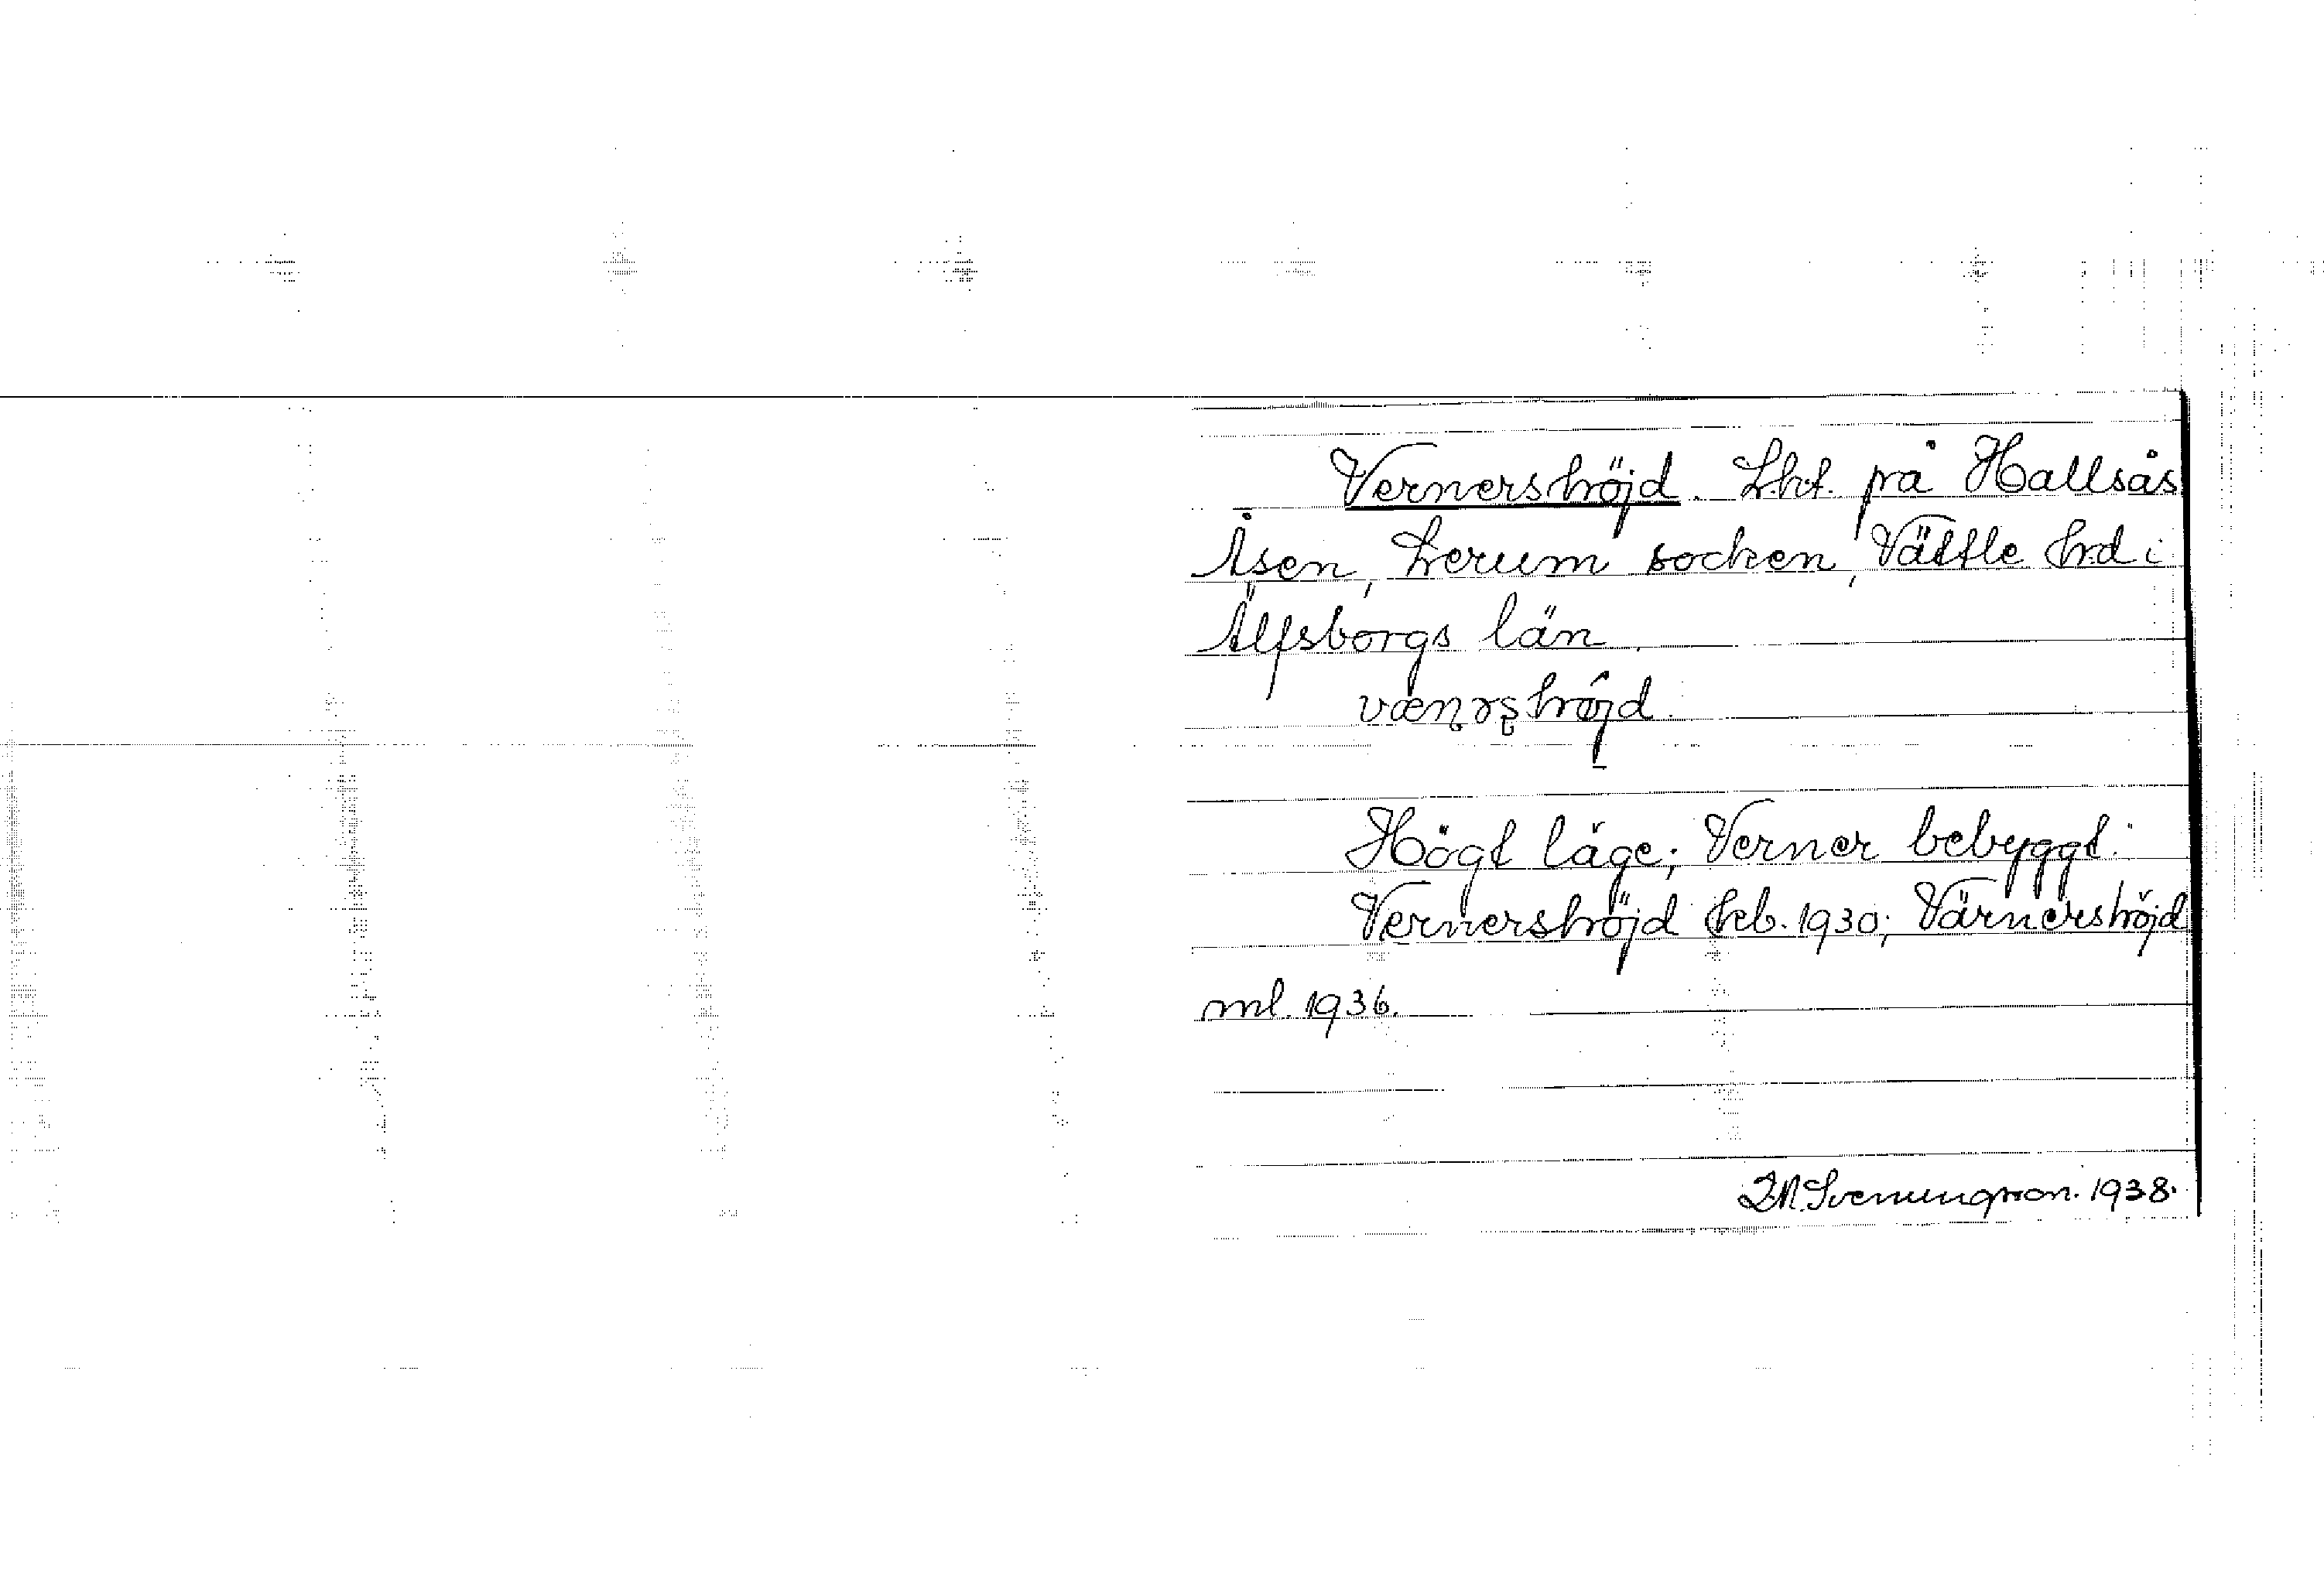 Vernershöjd. Lht. på Hallsås
Åsen, Lerum socken, Vättle hrd i
Älfsborgs län.
Högt läge; Verner bebyggt.
Vernershöjd hcb. 1930; Värnershöjd
ml. 1936.
1938.